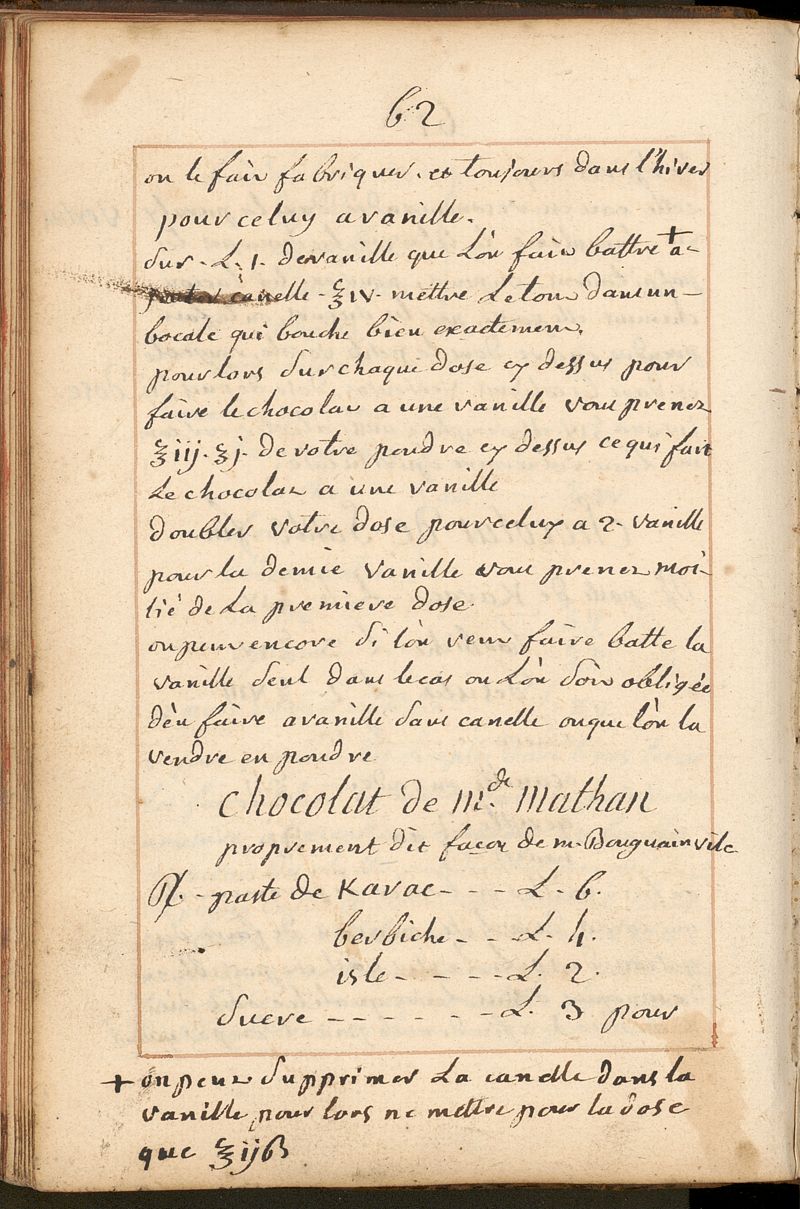 62
on le fait fabriquer. et toujours dans l'hiver
pour celuy a vanille.
sur - L. 1. de vanille que l'on fait battre + a-
jouter canelle - ℥ iv. mettre le tout dans un -
bocale qui bouche bien exactement.
pour lors sur chaque dose cy dessus pour
faire le chocolat a une vanille vous prenez
℥ iij. ʒ j. de votre poudre cy dessus ce qui fait
le chocolat a une vanille
doubler votre dose pour celuy a 2. vanille
pour la demie vanille vous prenez moi-
tié de la premiere dose.
on peut encore si l'on veut faire batte la
vanille seul dans le cas ou l'on soit obligée
d'en faire a vanille sans canelle ou que l'on la
vendre en poudre
Chocolat de m.de mathan
proprement dit facon de m. Bouguainvile
℞. - paste de Karac - - - L. 6.
berbiche - - L. 4.
isle - - - - L. 2.
sucre - - - - - - L. 3 pour
+ on peut supprimer la canelle dans la
vanille pour lors ne mettre pour la dose
que ℥ ijß